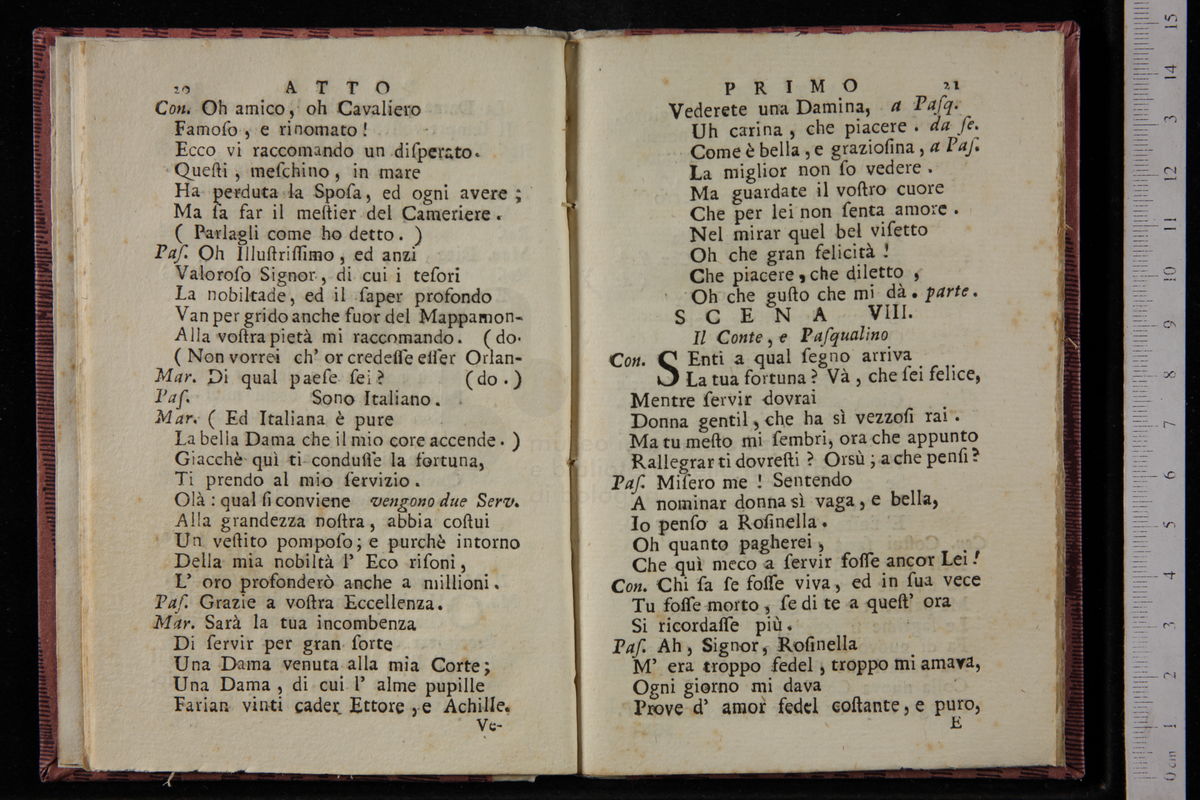 20 ATTO
Con. Oh amico, oh Cavaliero
Famoſo, e rinomato!
Ecco vi raccomando un diſperato.
Queſti, meſchino, in mare
Ha perduta la Spoſa, ed ogni avere;
Ma ſa far il meſtier del Cameriere.
( Parlagli come ho detto. )
Paſ. Oh Illuſtriſſimo, ed anzi
Valoroſo Signor, di cui i teſori
La nobiltade, ed il ſaper profondo
Van per grido anche fuor del Mappamon-
Alla voſtra pietà mi raccomando. (do.
( Non vorrei ch' or credeſſe eſſer Orlan-
Mar. Di qual paeſe ſei? (do.)
Paſ. Sono Italiano.
Mar. ( Ed Italiana è pure
La bella Dama che il mio core accende. )
Giacchè quì ti conduſſe la fortuna,
Ti prendo al mio ſervizio.
Olà: qual ſi conviene vengono due Serv.
Alla grandezza noſtra, abbia coſtui
Un veſtito pompoſo; e purchè intorno
Della mia nobiltà l' Eco riſoni,
L' oro profonderò anche a millioni.
Paſ. Grazie a voſtra Eccellenza.
Mar. Sarà la tua incombenza
Di ſervir per gran ſorte
Una Dama venuta alla mia Corte;
Una Dama, di cui l' alme pupille
Farian vinti cader Ettore, e Achille.
Ve-
PRIMO 21
Vederete una Damina, a Paſq.
Uh carina, che piacere. da ſe.
Come è bella, e grazioſina, a Paſ.
La miglior non ſo vedere.
Ma guardate il voſtro cuore
Che per lei non ſenta amore.
Nel mirar quel bel viſetto
Oh che gran felicità!
Che piacere, che diletto,
Oh che guſto che mi dà. parte.
SCENA VIII.
Il Conte, e Paſqualino
Con. SEnti a qual ſegno arriva
La tua fortuna? Và, che ſei felice,
Mentre ſervir dovrai
Donna gentil, che ha sì vezzoſi rai.
Ma tu meſto mi ſembri, ora che appunto
Rallegrar ti dovreſti? Orsù; a che penſi?
Paſ. Miſero me! Sentendo
A nominar donna sì vaga, e bella,
Io penſo a Roſinella.
Oh quanto pagherei,
Che quì meco a ſervir foſſe ancor Lei!
Con. Chi ſa ſe foſſe viva, ed in ſua vece
Tu foſſe morto, ſe di te a queſt' ora
Si ricordaſſe più.
Paſ. Ah, Signor, Roſinella
M' era troppo fedel, troppo mi amava,
Ogni giorno mi dava
Prove d' amor fedel coſtante, e puro,
E
0 cm 1 2 3 4 5 6 7 8 9 10 11 12 13 14 15